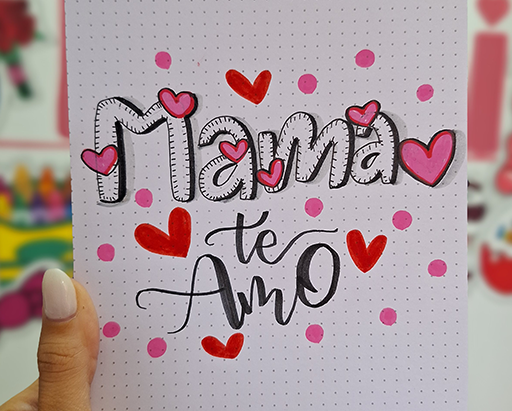 Mama
te
Amo